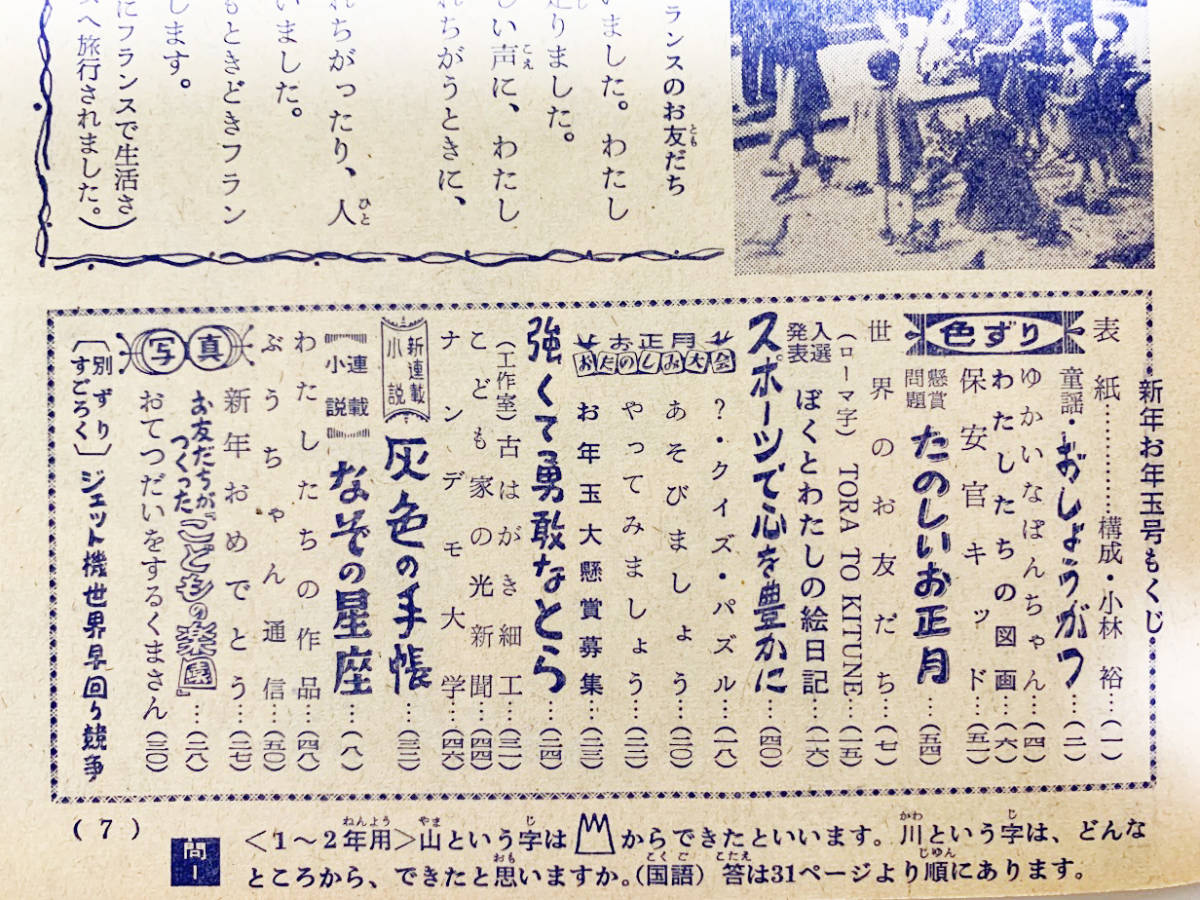 ランスのお友だち
いました。わたし
走りました。
しい声に、わたし
れちがうときに、
れちがったり、人
いました。
もときどきフラン
します。
にフランスで生活さ
スへ旅行されました。)
新年お年玉号もくじ
表紙……………構成・小林 裕…(一)
色ずり
童謡・おしょうがつ…(二)
ゆかいなぽんちゃん…(四)
わたしたちの図画…(六)
保安官キッド…(五一)
懸賞問題 たのしいお正月…(五四)
世界のお友だち…(七)
(ローマ字) TORA TO KITUNE…(一五)
入選発表 ぼくとわたしの絵日記…(一六)
スポーツで心を豊かに…(四〇)
お正月
おたのしみ大会
?・クイズ・パズル…(一八)
あそびましょう…(二〇)
やってみましょう…(二二)
お年玉大懸賞募集…(二三)
強くて勇敢なとら…(二四)
(工作室)古はがき細工…(三一)
こども家の光新聞…(四四)
ナンデモ大学…(四六)
新連載小説 灰色の手帳…(三二)
連載小説 なぞの星座…(八)
わたしたちの作品…(四八)
ぶうちゃん通信…(五〇)
写真
新年おめでとう…(二七)
お友だちがつくった『こどもの楽園』…(二八)
おてつだいをするくまさん(三〇)
〔別ずりすごろく〕ジェット機世界早回り競争
(7)
問1
<1~2年用>山という字は からできたといいます。川という字は、どんな
ところから、できたと思いますか。(国語) 答は31ページより順にあります。